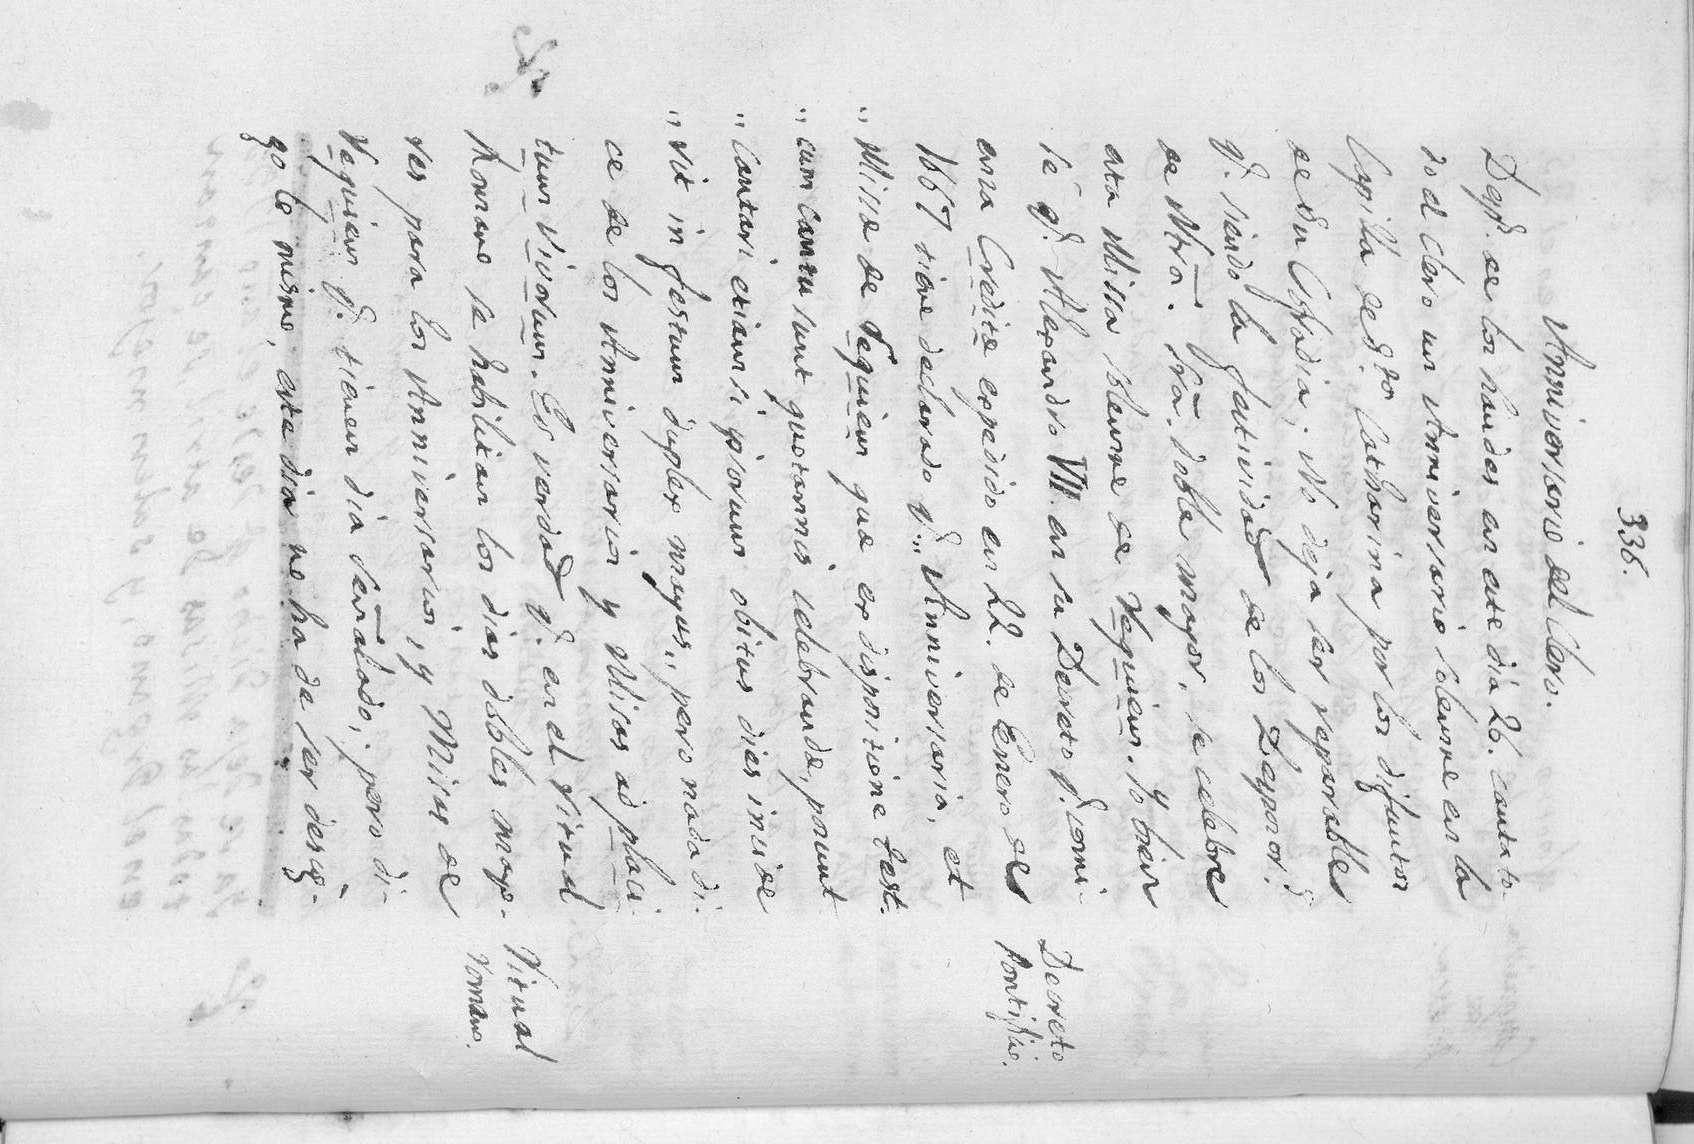 336.
Anniversario del Clero.
Desps. de los laudes en este dia 26. canta to-
do el Clero un Anniversario solemne en la
Capilla de Sta. Catharina por los difuntos
de su Cofadia; No deja ser reparable
q. siendo la festividad de los Desposors.
de Ntra. Sra. doble mayor, se celebre
esta Missa solemne de Requiem. Yo bien
sé q. Alexandro VII. en su Decreto q. comi-
enza Creditæ expedido en 22. de Enero del
1667 tiene declarado q. „Anniversaria, et
„Missæ de Requiem quæ ex dispositione test.
„cum cantu sunt quotannis celebrandæ, possunt
„Cantari etiamsi ipsorum obitus dies incide
„rit in festum duplex majus„ pero nada di-
ce de los Anniversarios y Misas ad placi-
tum vivorum. Es verdad q. en el Ritual
Romano se habilitan los dias dobles mayo-
res para los Anniversarios, y Misas de
Requiem q. tienen dia señalado; pero di-
go lo mismo, este dia no ha de ser desig-
Decreto
Pontificio.
Ritual
romano.